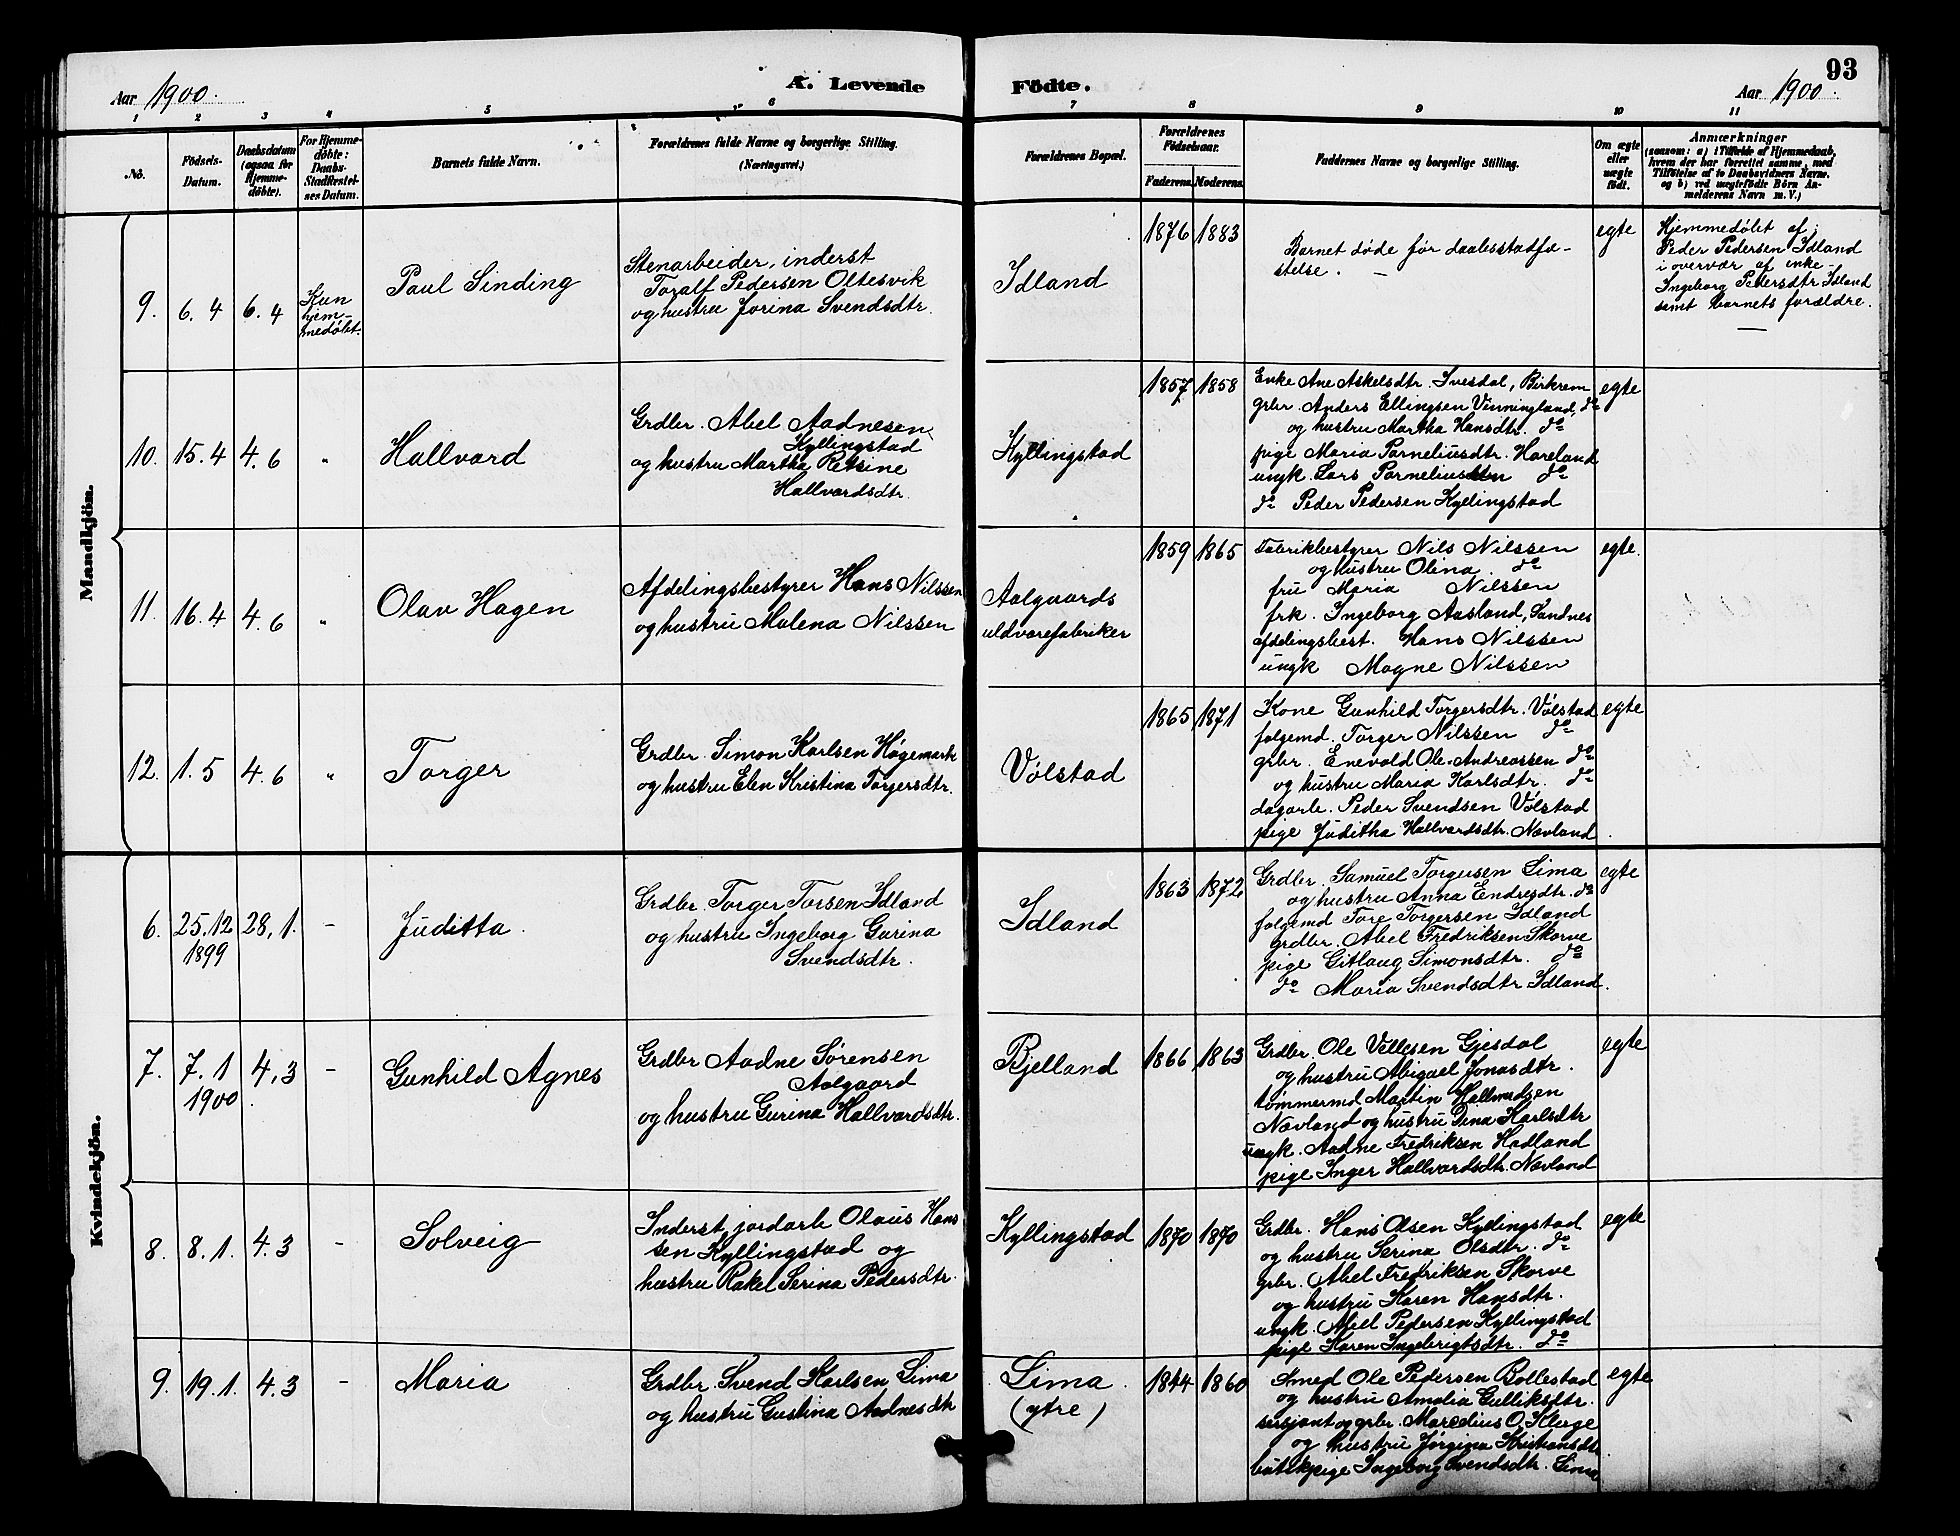 93
Aar 1900.
A. Levende
Födte.
Aar 1900.
1 2 3 4 5 6 7 8 9 10 11
No.
Födsels-
Datum.
Daabsdatum
(ogsaa for
Hjemme-
döbte).
For Hjemme-
döbte:
Daabs-
Stadfæstel-
ses Datum.
Barnets fulde Navn.
Forældrenes fulde Navne og borgerlige Stilling.
(Næringsvei.)
Forældrenes Bopæl.
Forældrenes
Födselsaar.
Faderens. Moderens.
Faddernes Navne og borgerlige Stilling.
Om ægte
eller
uægte
født.
Anmærkninger
(saasom: a) i Tilfælde af Hjemmedaab,
hvem der har forrettet samme, med
Tilføielse af to Daabsvidners Navne.
og b) ved uægtefødte Börn An-
melderens Navn m. V.)
Mandkjön.
9. 6.4 6.4
Kun
hjem-
medøbt.
Paul Sinding
Stenarbeider, inderst
Toralf Pedersen Oltesvik
og hustru Jorina Svendsdtr.
Idland
1876 1883
Barnet døde før daabsstadfæ-
stelse. —
egte
Hjemmedøbt af
Peder Pedersen Idland
i overvær af enke
Ingeborg Pedersdtr Idland
samt barnets forældre.
10. 15.4 4.6 "
Hallvard
Grdbr. Abel Aadnesen
Kyllingstad
og hustru Martha Retsine
Hallvardsdtr.
Kyllingstad
1857 1858
Enke Ane Askelsdtr. Ivesdal, Birkrem
grbr. Anders Ellingsen Vinningland, do
og hustru Martha Hansdtr. do
pige Maria Parneliusdtr. Hareland
ungk. Lars Parneliussen do
do Peder Pedersen Kyllingstad
egte
11. 16.4 4.6 "
Olav Hagen
Afdelingsbestyrer Hans Nilssen
og hustru Malena Nilssen
Aalgaards
uldvarefabriker
1859 1865
Fabrikbestyrer Nils Nilssen
og hustru Olina do
fru Maria Nilssen
frk. Ingeborg Aasland, Sandnes
afdelingsbest. Hans Nilssen
ungk Magne Nilssen
egte.
12. 1.5 4.6 "
Torger
Grdbr. Simon Karlsen Høgemark
og hustru Elen Kristina Torgersdtr.
Vølstad
1865 1871
Kone Gunhild Torgersdtr. Vølstad
folgemd. Torger Nilssen do
grbr. Enevald Ole Andreassen do
og hustru Maria Karlsdtr. do
dagarb. Peder Svendsen Vølstad
pige Juditha Hallvardsdtr. Navland
egte
Kvindekjön.
6. 25.12 28.1. -
1899
Juditta.
Grdbr. Torger Torsen Idland
og hustru Ingeborg Gurina
Svendsdtr.
Idland
1863 1872
Grdbr. Samuel Torgersen Lima
og hustru Anna Endresdtr. do
folgemd Tore Torgersen Idland
grdbr. Abel Fredriksen Skorve
pige Gitlaug Simonsdtr. do
do Maria Svendsdtr Idland.
egte
7. 7.1 4.3 -
1900
Gunhild Agnes
Grdbr Aadne Sørensen
Aalgaard
og hustru Gurina Hallvardsdtr.
Bjelland
1866 1863
Grdbr. Ole Vellesen Gjesdal
og hustru Abigael Jonasdtr.
tømmermd Martin
Navland og hustru Dina Karlsdtr
ungk. Aadne Fredriksen Hadland
pige Inger Hallvardsdtr. Navland
egte
8. 8.1. 4.3 -
Solveig
Inderst, jordarb Olaus Han-
sen Kyllingstad og
hustru Rakel Serina Pedersdtr.
Kyllingstad
1870 1870
Grdbr. Hans Olsen Kyllingstad
og hustru Serina Olsdtr. do
grbr. Abel Fredriksen Skorve
og hustru Karen Hansdtr.
ungk. Abel Pedersen Kyllingstad
pige Karen Ingebrigtsdtr. do
egte
9. 19.1. 4.3 -
Maria
Grdbr. Svend Karlsen Lima
og hustru Gustina Aadnesdtr
Lima
(ytre)
1844 1860
Smed Ole Pedersen Bollestad
og hustru Amalia Gulliksdtr.
sersjant og grbr. Maredius O. Kluge
og hustru Jørgina Kristiansdtr
butikpige Ingeborg Svendsdtr. Lima
egte